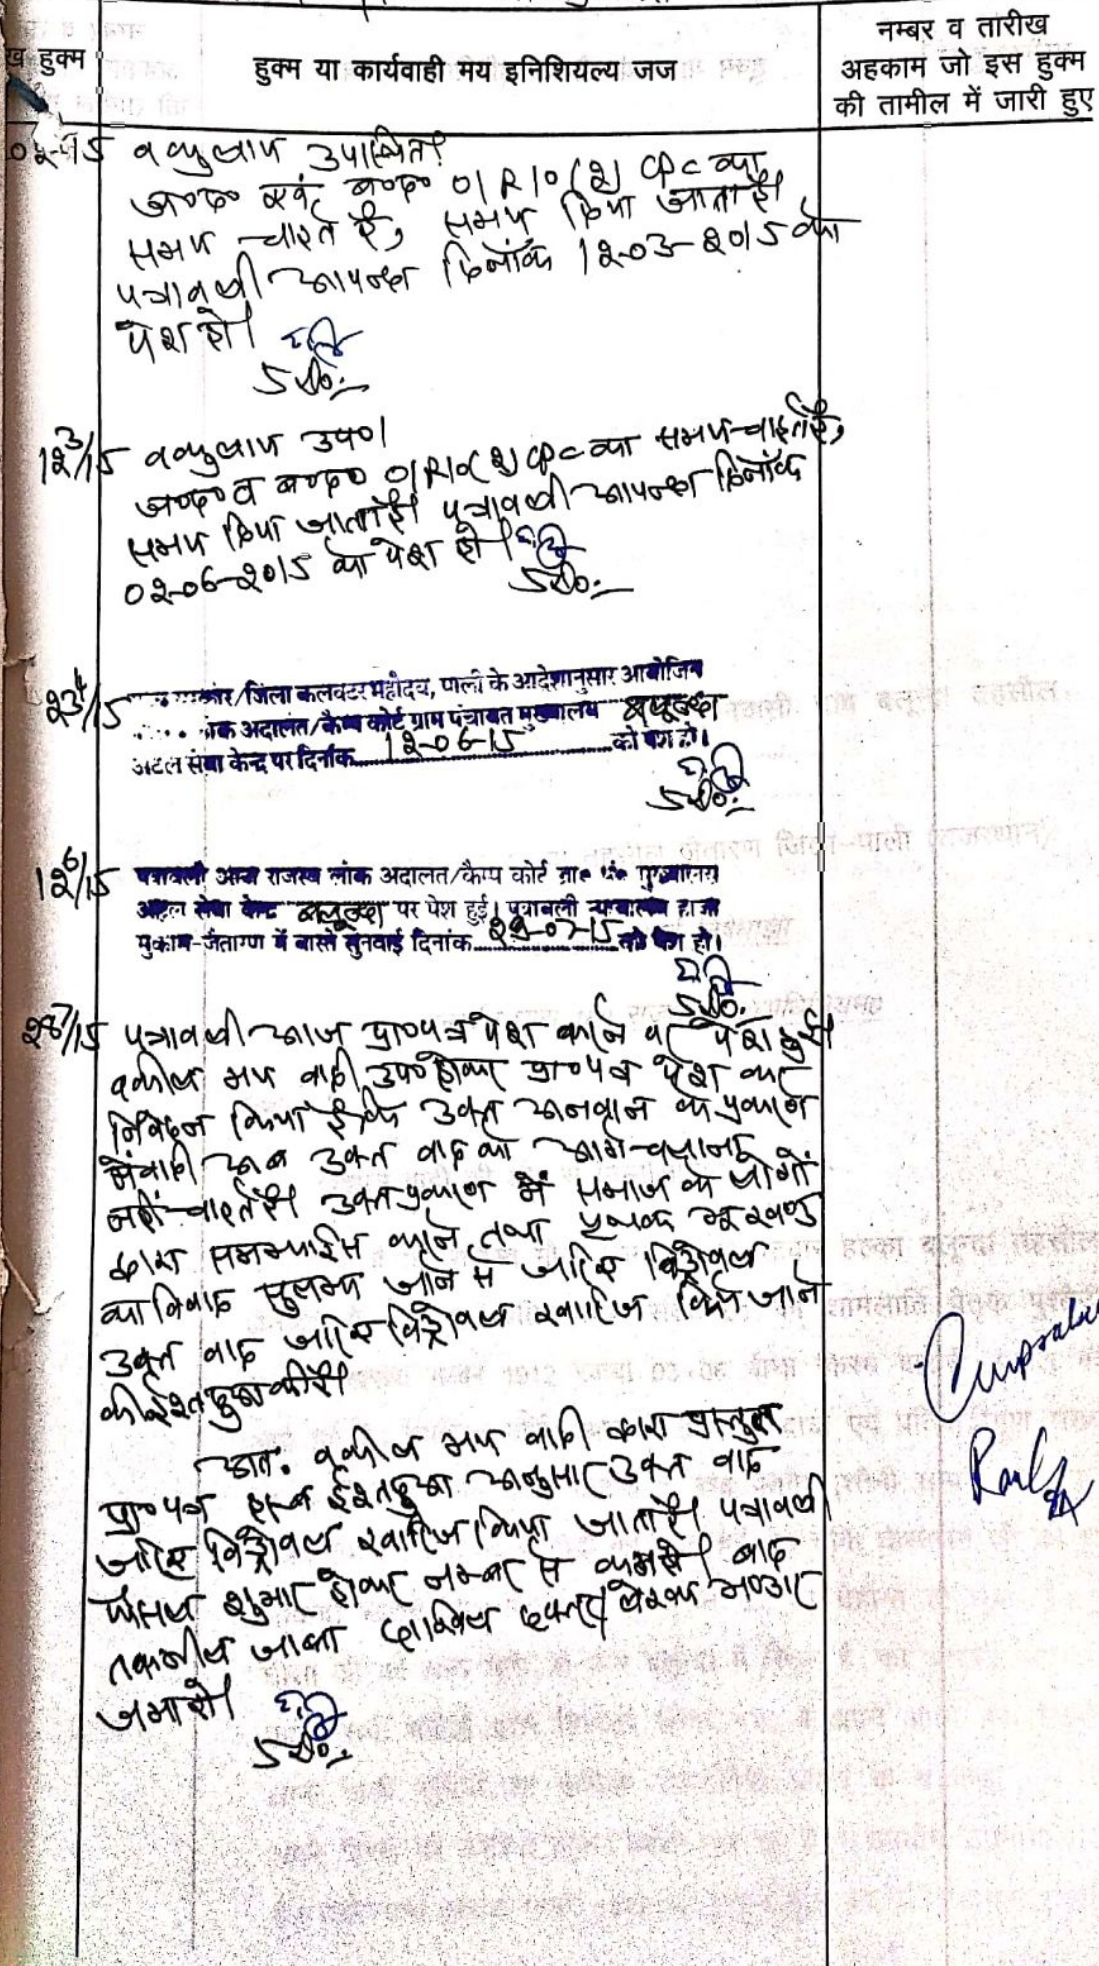 ख हुक्म
हुक्म या कार्यवाही मय इनिशियल्य जज
नम्बर व तारीख
अहकाम जो इस हुक्म
की तामील में जारी हुए
02-15 वकुलाय उपस्थित।
ज०द० एवं ब०द० O1R10(2) CPC का
समय चाहते है, समय दिया जाता है।
पत्रावली आयन्दा दिनांक 12-03-2015 को
पेश हो।
12/3/15 वकुलाय उप०।
ज०द० व ब०द० O1R10(2) CPC का समय चाहते है,
समय दिया जाता है। पत्रावली आयन्दा दिनांक
02-06-2015 को पेश हो।
23/4/15 /जिला कलक्टर महोदय, पाली के आदेशानुसार आयोजित
अदालत/कैम्प कोर्ट ग्राम पंचायत मुख्यालय बलून्दा
अटल सेवा केन्द्र पर दिनांक 12-06-15 को पेश हो।
12/6/15 पत्रावली आज राजस्व लोक अदालत/कैम्प कोर्ट ग्रा० पं० मुख्यालय
अटल सेवा केन्द्र बलून्दा पर पेश हुई। पत्रावली न्यायालय हाजा
मुकाम-जैतारण में वास्ते सुनवाई दिनांक 29-07-15 को पेश हो।
28/7/15 पत्रावली आज प्रा०पत्र पेश करने पर पेश हुई।
वकील मय वादी उप० होकर प्रा०पत्र पेश कर
निवेदन किया है कि उक्त अनवान के प्रकरण
में वादी अब उक्त वाद को आगे चलाना
नहीं चाहते है। उक्त प्रकरण में समाज के लोगों
द्वारा समझाईस करने तथा पृथक भूखण्ड
का विवाद सुलझ जाने से जरिए विड्रोवल
उक्त वाद जरिए विड्रोवल खारिज किये जाने
की ईश्तदुआ की है।
अतः वकील मय वादी द्वारा प्रस्तुत
प्रा०पत्र ईश्तदुआ अनुसार उक्त वाद
जरिए विड्रोवल खारिज किया जाता है। पत्रावली
फैसल शुमार होकर नम्बर से कम हो। बाद
तकमील जाब्ता दाखिल दफ्तर लेखक भण्डार
जमा हो।